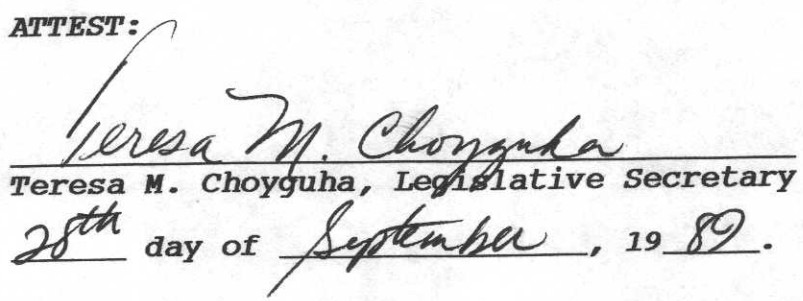 ATTEST:
Teresa M. Choyguha
Teresa M. Choyguha, Legislative Secretary
28th day of September, 1989.